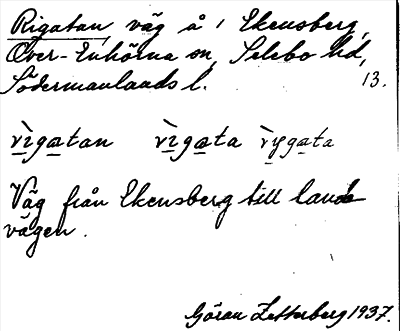 Rigatan, väg å 1 Ekensberg,
Över-Enhörna sn, Selebo hd,
Södermanlands l. 13.
vìgatan vìgata vìgata
Väg från Ekensberg till lands
vägen.
Göran Zetterberg 1937.